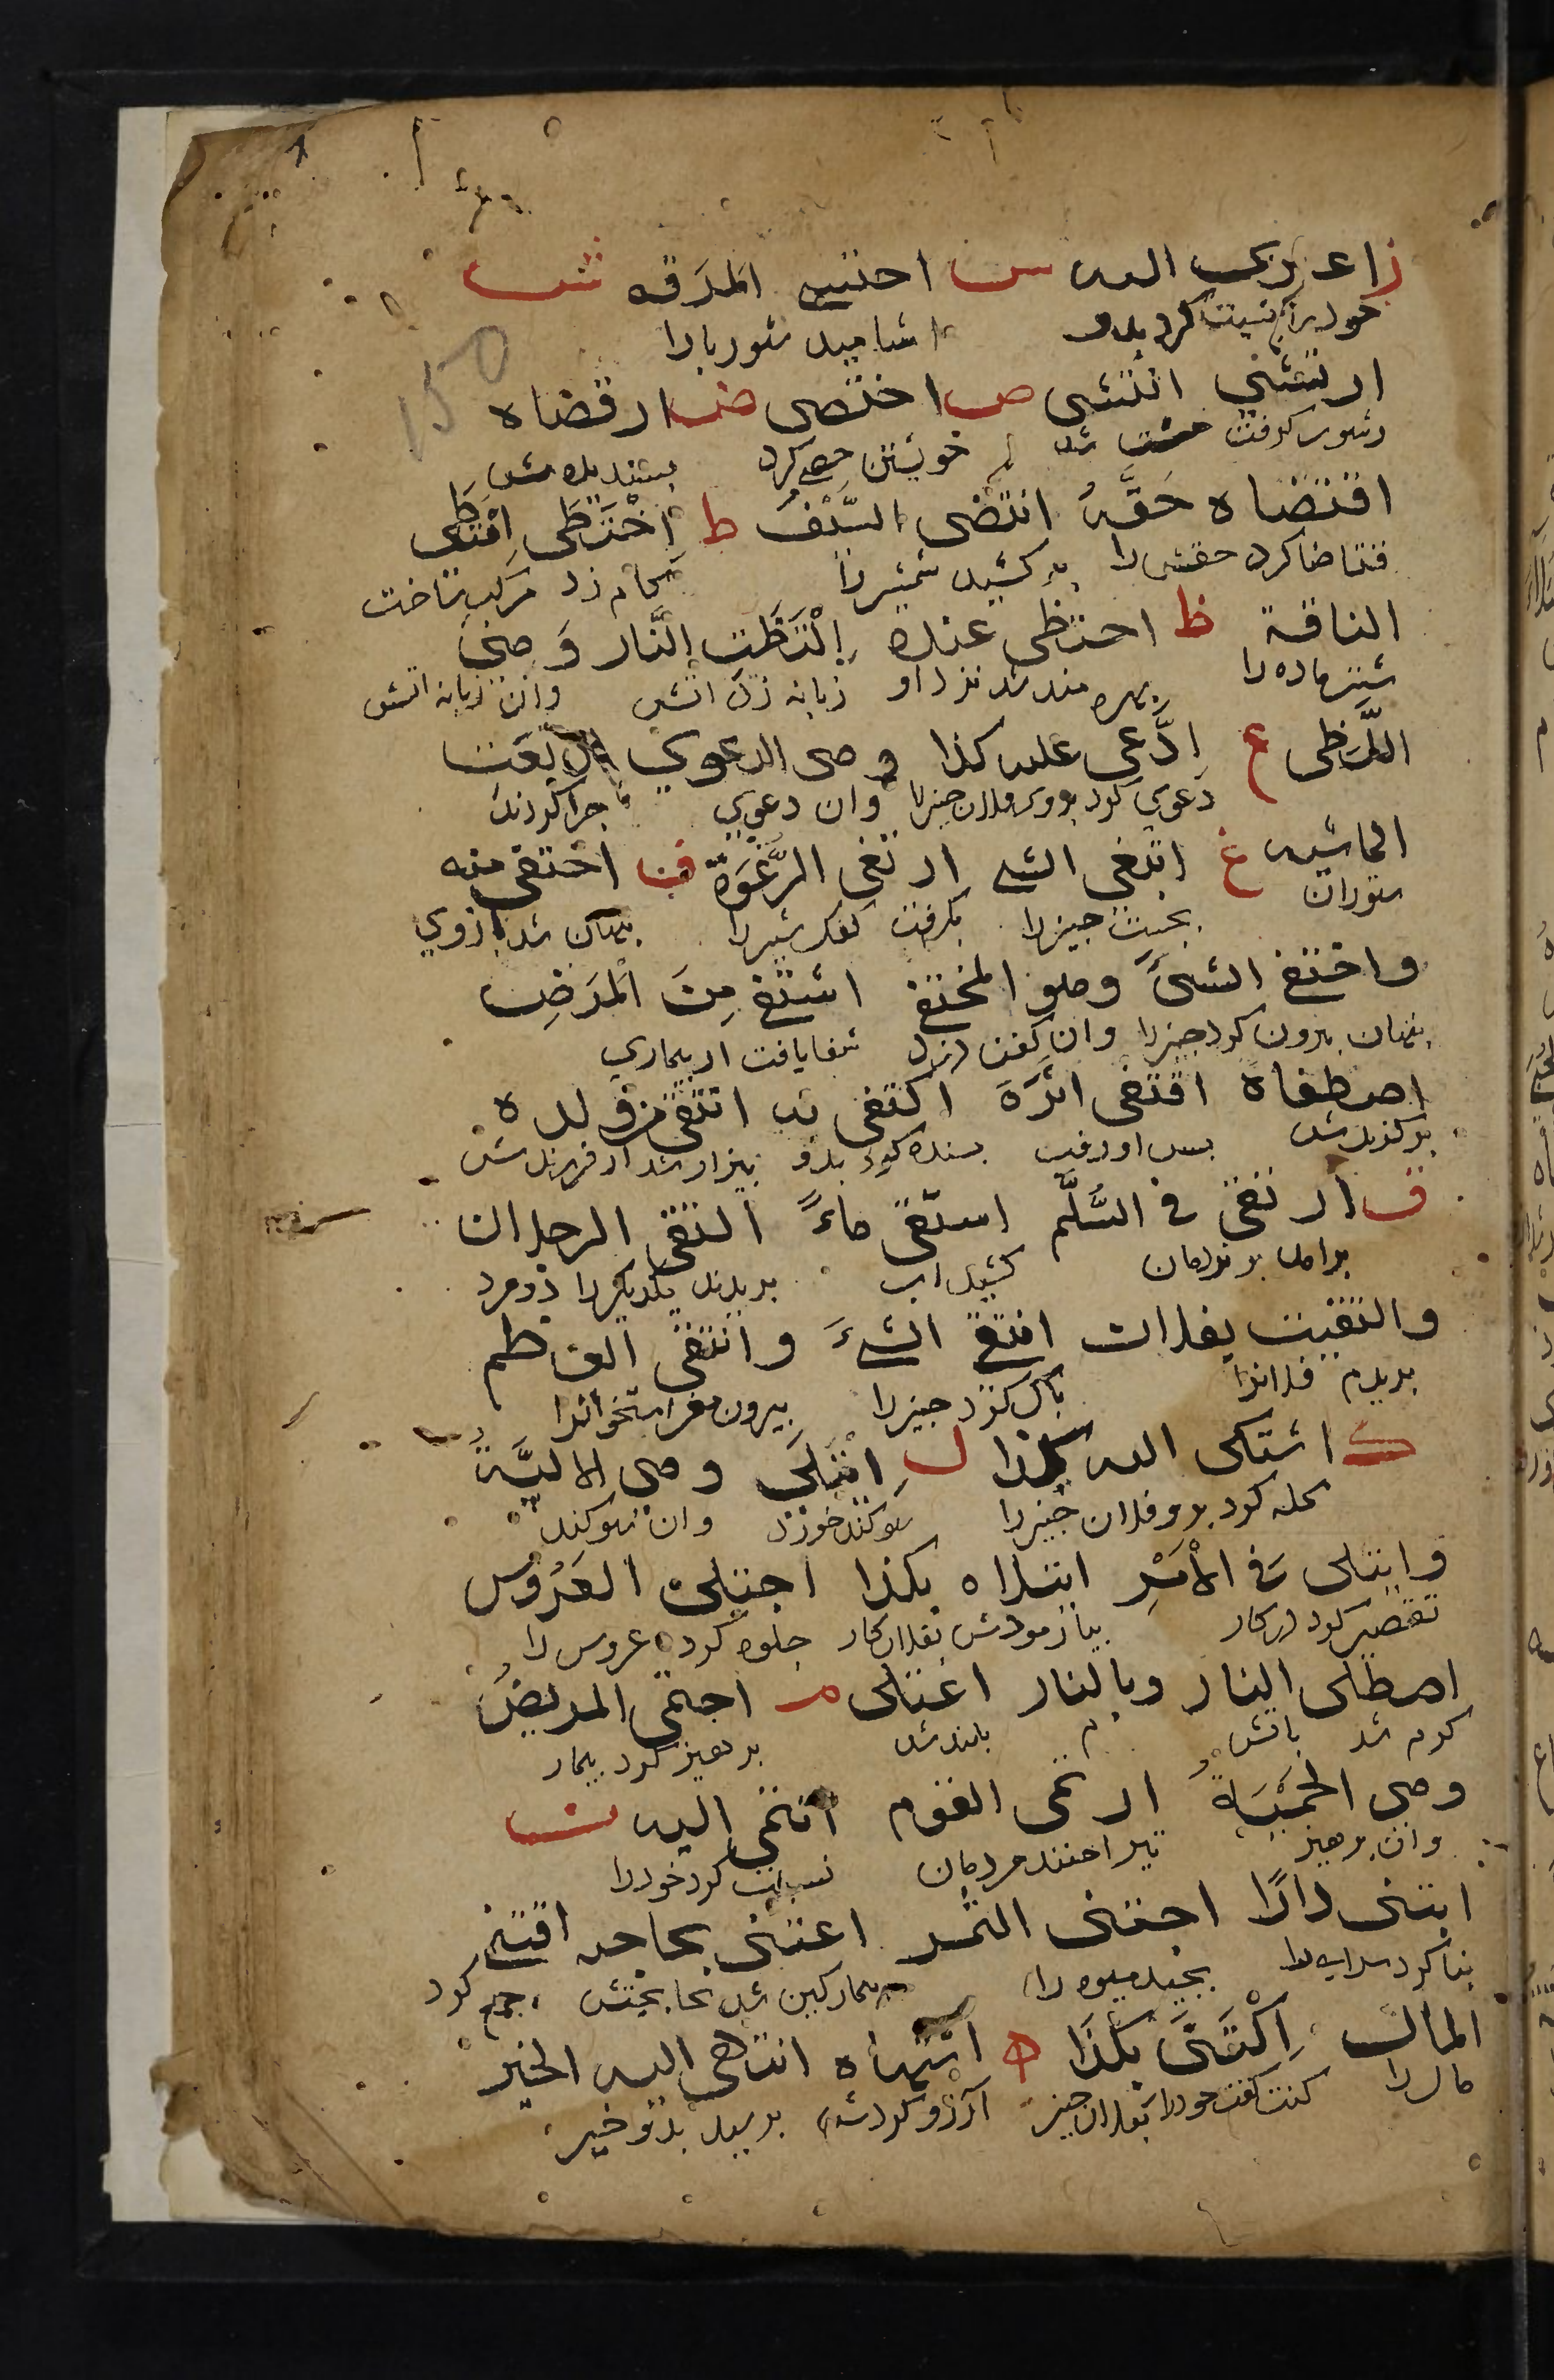 ز اعتزى اليه س احتسى المرقه ش
خود را نسبت كرد بدو اشاميد شوربا را
ارتشى انتشى ص اختصى ض ارتضاه
رشوت گرفت مست شد خويشتن خصى كرد بسنديدش
اقتضاه حَقَّهُ انتضى السَّيْفَ ط اِخْتَطَى اِمْتَطى
تقاضا كرد حقش را بر كشيد شمشيررا گام زد مركب ساخت
الناقة ظ احتظى عنده اِلْتَظَتِ النَّار وَهي
شتر ماده را بهره مند شد نزد او زبانه زد اتش وان زبانه اتش
اللَّظى ع اِدَّعى عليه كذا وهي الدعوي ارتعت
دعوي كرد بروى فلان چيزرا وان دعوي چرا كردند
الماشيه غ ابتغى الشي ارتغى الرَّغْوَة ف اختفى منه
ستوران بجست چيزرا بگرفت كفك شيررا پنهان شد ازوي
واختفى الشئَ وهو المختفي اشتفى مِنَ المَرَضِ
پنهان بيرون كرد چيزرا وان كفن دزد شفا يافت از بيماري
اصطفاه اقتفى اثَرَهُ اكتفى به انتفى من ولده
بر گزيدش پس او رفت بسنده كرد بدو بيزار شد از فرزندش
ق ارتقى في السُّلَّم استقى ماءً التقى الرجلان
برامد بر نردبان كشيد اب بديدند يكديگررا دو مرد
والتقيت بفلان انتقى الشئَ وانتقى العظم
بديدم فلانرا پاك كرد چيزرا بيرون مغز استخوانرا
ك اشتكى اليه كذا ل اِئْتَلَى وهي الالِيَّةُ
گله كرد برو فلان چيزرا سوگند خورد وان سوگند
وايتلى في الأمْرِ ابتلاه بكذا اجتلى العَرُوسَ
تقصير كرد در كار بيازمودش بفلان كار جلوه كرد عروس را
اصطلى النار وبالنار اعتلى م احتمى المريضُ
گرم شد باتش م بلند شد پرهيز كرد بيمار
وهي الحِمْيَةُ ارتمى القوم انتمى اليه ن
وان پرهيز تير انداختند مردمان نسبت كرد خودرا
ابتنى دارًا اجتنى الثمر اعتنى بحاجته اقتنى
بنا كرد سراي را بچيد ميوه را تيماركين شد بحاجتش جمع كرد
المال اِكْتَنَى بكذا ه اشتهاه انتهى اليه الخبر
مال را كنيت گفت خودرا بفلان چيز آرزو كردش برسيد بدو خبر